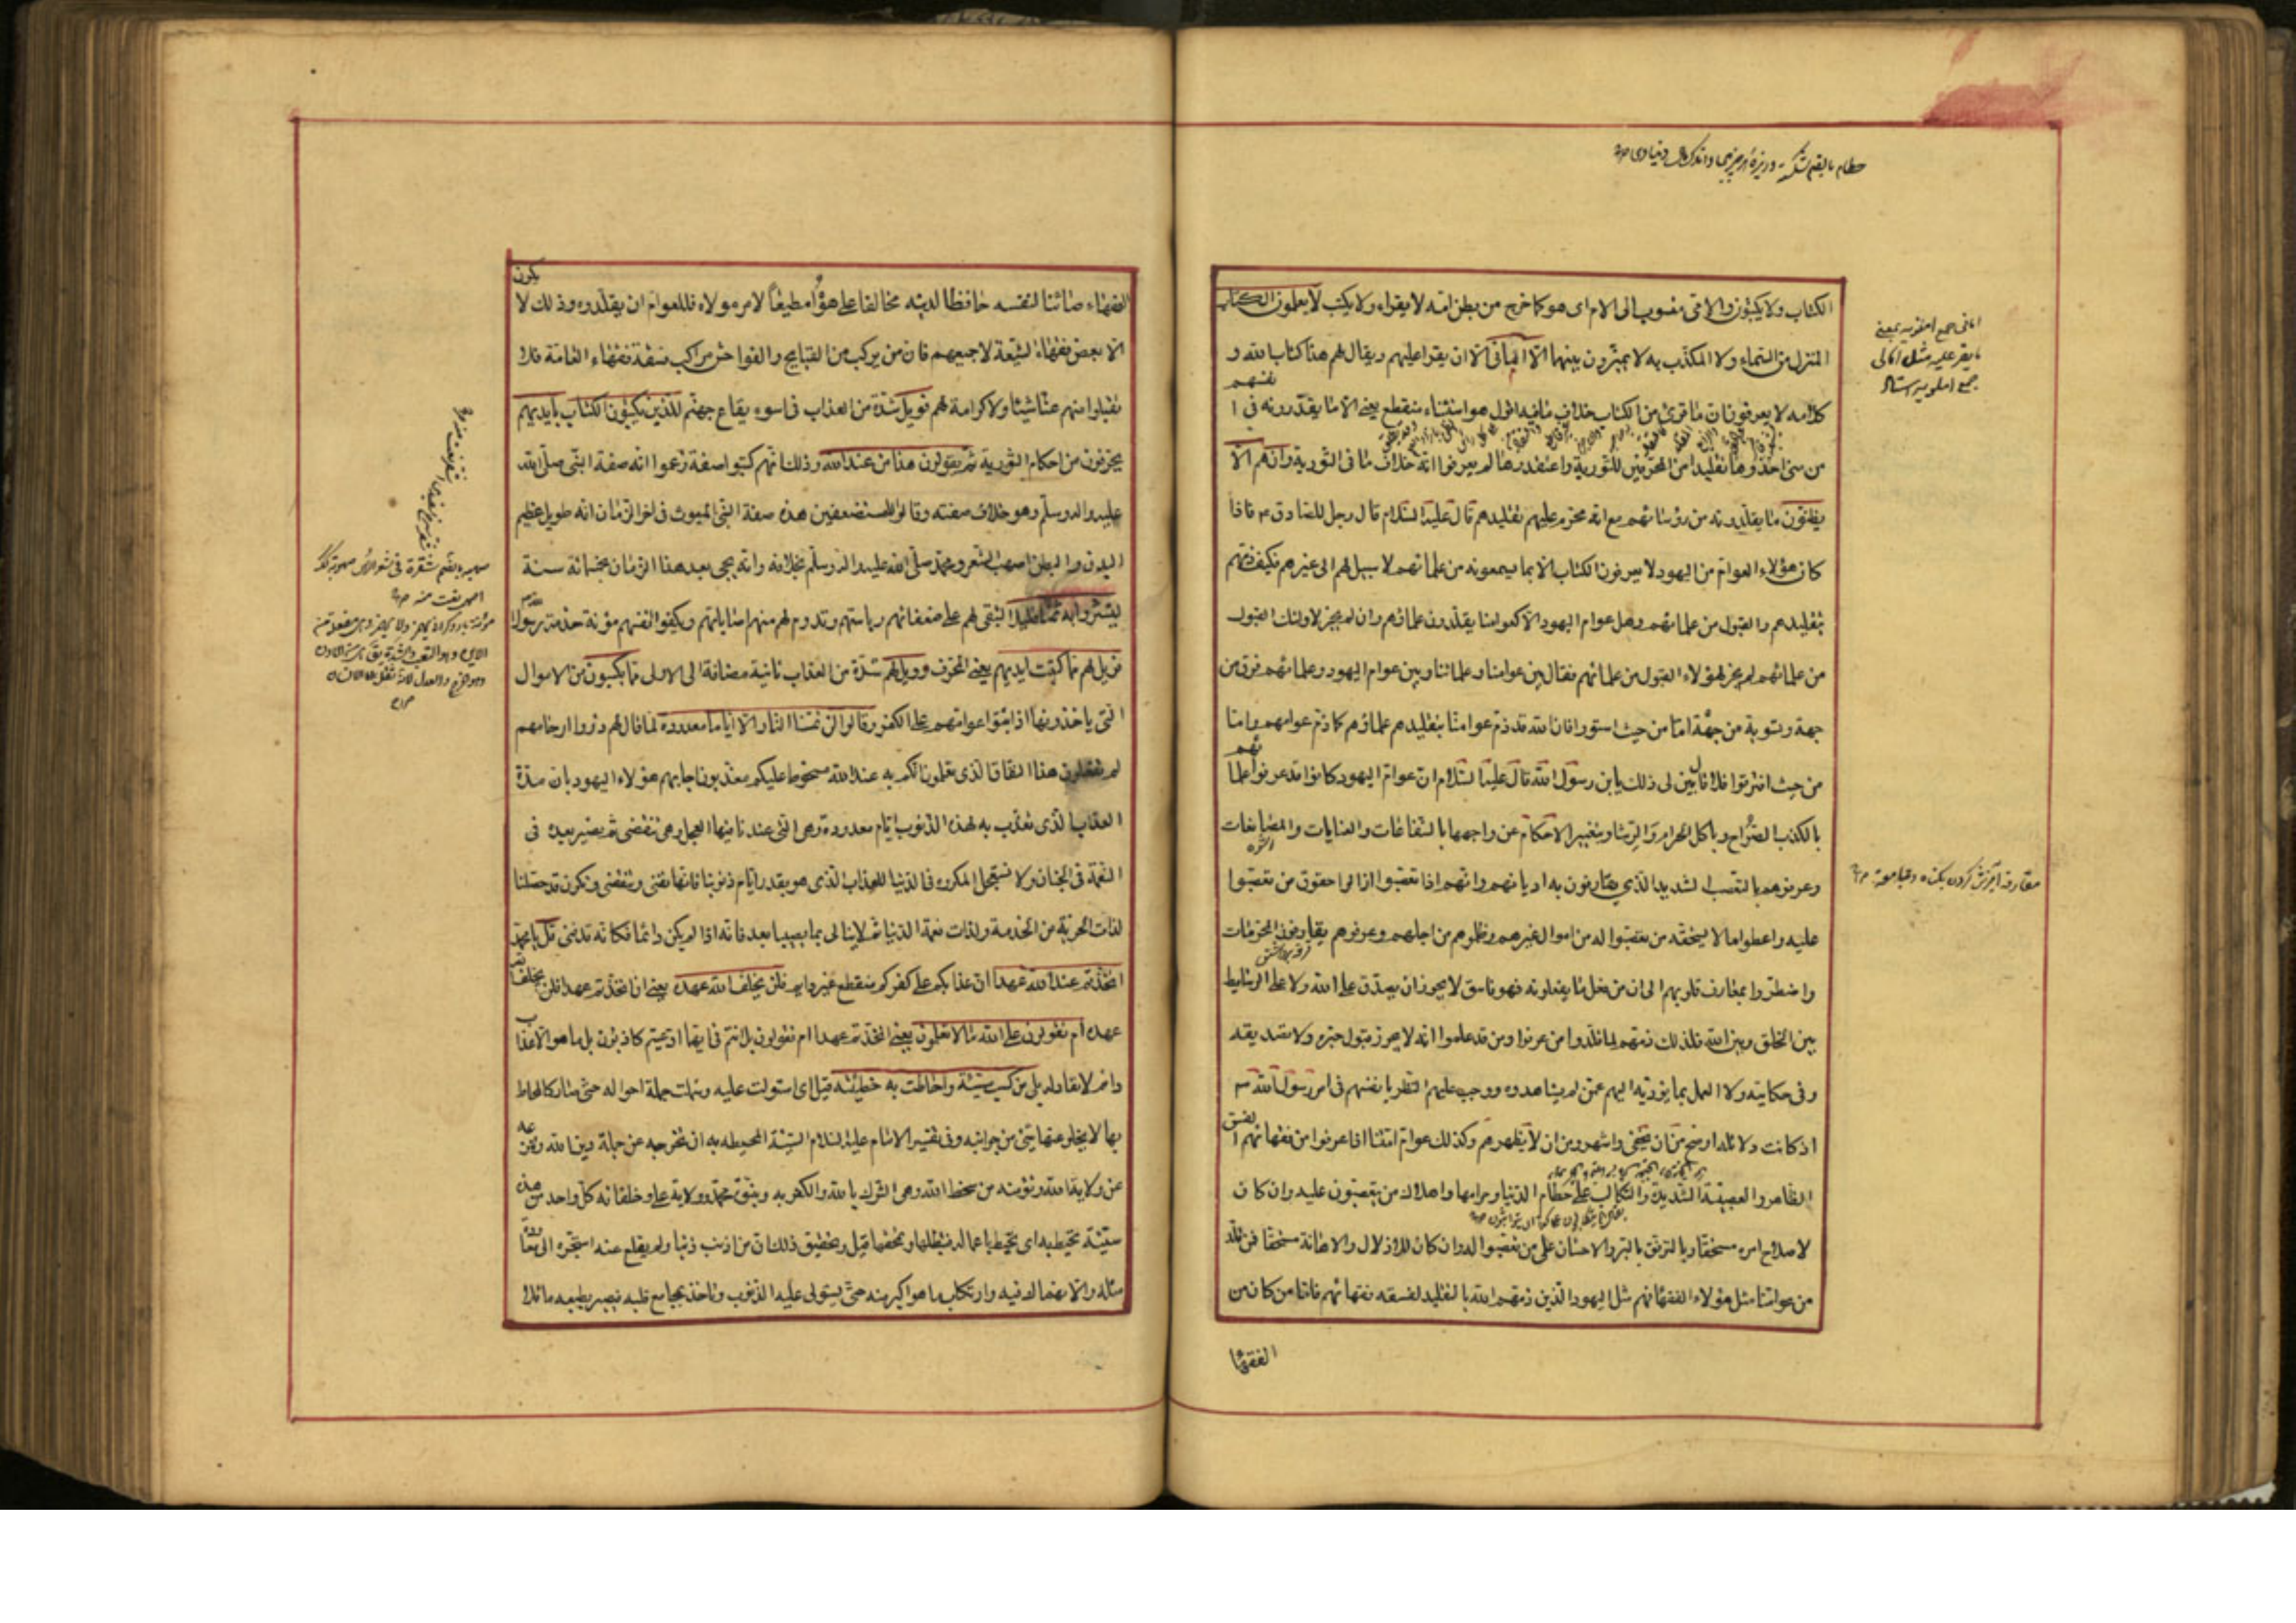 حطام بالضم شكسته و ريزه از هر چيز
امانى جمع امنويه بمعنى
ما يقرء عليه مثل امالى
جمع املويه
الكتاب ولا يكتبون والامّى منسوب الى الام اى هو كما خرج من بطن امّه لا يقراء ولا يكتب لا يعلمون الكتاب
المنزل من السّماء ولا المكذّب به لا يميّزون بينهما الّا امانىّ الّا ان يقرا عليهم ويقال لهم هذا كتاب الله و
كلامه لا يعرفون ان ما قرئ من الكتاب خلاف ما فيه اقول هو استثناء منقطع يعنى الّا ما يقدّرونه فى انفسهم
من منى اخذوها تقليدا من المحرّفين للتّورية واعتقدوها لم يعرفوا انّه خلاف ما فى التّورية وان هم الّا
يظنّون ما يقلّدونه من رؤسائهم مع انّه محرّم عليهم تقليدهم قال عليه السّلام قال رجل للصّادق ع فاذا
كان هؤلاء العوام من اليهود لا يعرفون الكتاب الّا بما يسمعونه من علمائهم لا سبيل لهم الى غيره فكيف ذمّهم
بتقليدهم والقبول من علمائهم وهل عوام اليهود الّا كعوامنا يقلّدون علماؤهم وان لم يجز لاولئك القبول
من علمائهم لم يجز لهؤلاء القبول من علمائهم فقال بين عوامنا وعلمائنا وبين عوام اليهود وعلمائهم فرق من
جهة وتسوية من جهة امّا من حيث استووا فانّ الله قد ذمّ عوامنا بتقليدهم علماؤهم كما ذمّ عوامهم وامّا
من حيث افترقوا فلا قال بيّن لى ذلك يا بن رسول الله قال عليه السّلام انّ عوام اليهود كانوا قد عرفوا علمائهم
بالكذب الصّراح وباكل الحرام والرّشا وبتغيير الاحكام عن واجبها بالشّفاعات والعنايات والمصانعات
وعرفوهم بالتعصّب الشديد الّذى يفارقون به اديانهم وانّهم اذا تعصّبوا ازالوا حقوق من تعصّبوا
عليه واعطوا ما لا يستحقّه من تعصّبوا له من اموال غيرهم وظلموهم من اجلهم وعرفوهم يقارفون المحرّمات
واضطرّوا بمعارف قلوبهم الى ان من فعل ما يفعلونه فهو فاسق لا يجوز ان يصدّق على الله ولا على الوسايط
بين الخلق وبين الله فلذلك ذمّهم لما قلّدوا من عرفوا ومن قد علموا انّه لا يجوز قبول خبره ولا تصديقه
وفى حكايته ولا العمل بما يؤدّيه اليهم عمّن لم يشاهدوه ووجب عليهم النّظر بانفسهم فى امر رسول الله ص
اذ كانت دلائله اوضح من ان تخفى واشهر من ان لا تظهر لهم وكذلك عوام امّتنا اذا عرفوا من فقهائهم الفسق
الظاهر والعصبيّة الشّديدة والتّكالب على حطام الدّنيا وحرامها واهلاك من يتعصّبون عليه وان كان
لاصلاح امره مستحقّا وبالترفّق بالبرّ والاحسان على من تعصّبوا له وان كان للاذلال والاهانة مستحقّا فمن قلّد
من عوامّنا مثل هؤلاء الفقهاء فهم مثل اليهود الّذين ذمّهم الله بالتّقليد لفسقه فقهائهم فامّا من كان من
الفقهاء
الفقهاء صائنا لنفسه حافظا لدينه مخالفا على هواه مطيعاً لامر مولاه فللعوام ان يقلّدوه وذلك لا يكون
الّا بعض فقهاء الشّيعة لا جميعهم فان من يركب من القبايح والفواحش مراكب فسقة فقهاء العامّة فلا
تقبلوا منهم عنّا شيئا ولا كرامة لهم فويل شدّة من العذاب فى اسوء بقاع جهنّم للّذين يكتبون الكتاب بايديهم
يحرّفون من احكام التّورية ثمّ يقولون هذا من عند الله وذلك انّهم كتبوا صفة زعموا انّه صفة النّبى صلّى الله
عليه واله وسلّم وهو خلاف صفته وقالوا للمستضعفين هذه صفة النّبى المبعوث فى اخر الزّمان انّه طويل عظيم
البدن والبطن اصهب الشّعر ومحمّد صلّى الله عليه واله وسلّم بخلافه وانّه يجى بعد هذا الزّمان بخمسمائة سنة
ليشتروا به ثمنا قليلا لتبقى لهم على ضعفائهم رياستهم وتدوم لهم منهم اصاباتهم ويكفوا انفسهم مؤنة خدمة رسول الله
فويل لهم ممّا كتبت ايديهم يعنى المحرّف وويل لهم شدّة من العذاب ثانية مضافة الى الاولى ممّا يكسبون من الاموال
الّتى ياخذونها اذا اثبتوا عوامّهم على الكفر وقالوا لن تمسّنا النّار الّا ايّاما معدودة لمّا قال لهم ذووا ارحامهم
لم تفعلون هذا النّفاق الّذى تعلمون انّكم به عند الله مسخوط عليكم معذّبون اجابهم هؤلاء اليهود بان مدّة
العذاب الّذى نعذّب به لهذه الذّنوب ايّام معدودة وهى الّتى عبدنا فيها العجل وهى تنقضى ثمّ نصير بعده فى
النّعمة فى الجنان ولا نستعجل المكروه فى الدّنيا للعذاب الّذى هو بقدر ايّام ذنوبنا فانّها تفنى وتنقضى ونكون قد حصّلنا
لذات الحريّة من الخدمة ولذات نعمة الدّنيا ثمّ لا نبالى بما يصيبنا بعد فانّه اذا لم يكن دائما فكانّه قد فنى قل يا محمّد
اتّخذتم عند الله عهدا انّ عذابكم على كفركم منقطع غير دايم فلن يخلف الله عهده يعنى ان اتّخذتم عهدا فلن يخلف الله
عهده ام تقولون على الله ما لا تعلمون يعنى اتّخذتم عهدا ام تقولون بل انتم فى ايّها ادّعيتم كاذبون بل ما هو الّا عذاب
دائم لا نفاد له بلى من كسب سيّئة واحاطت به خطيئته قيل اى استولت عليه وشملت جملة احواله حتّى صار كالمحاط
بها لا يخلو عنها شئ من جوانبه وفى تفسير الامام عليه السّلام السّيّئة المحيطه به ان تخرجه عن جملة دين الله وتنزعه
عن ولاية الله وتؤمنه من سخط الله وهى الشّرك بالله والكفر به وبنبوّة محمّد وولاية على وخلفائه كلّ واحد من هذه
سيّئة تحيط به اى تحيط باعماله فتبطلها وتمحقها قيل وتحقيق ذلك انّ من اذنب ذنبا ولم يقلع عنه استجرّه الى معاودة
مثله والانهماك فيه وارتكاب ما هو اكبر منه حتّى يستولى عليه الذّنوب وتاخذ بمجامع قلبه فيصير بطبعه مائلا